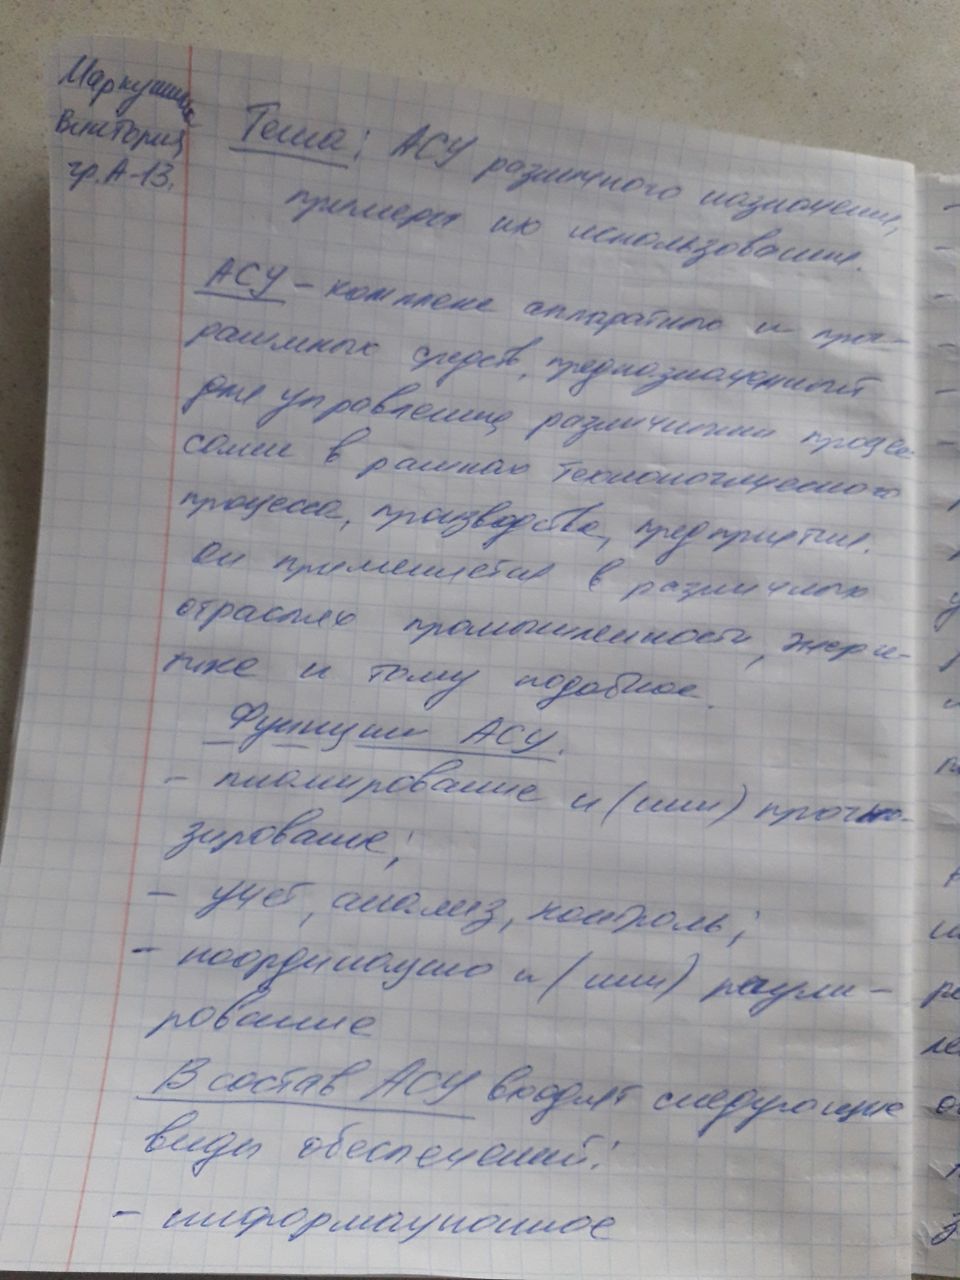 Маркушина
Виктория
гр. А-13.
Тема: АСУ различного назначения,
примеры их использования.
АСУ – комплекс аппаратных и прог-
раммных средств, предназначенный
для управления различными процес
сами в рамках технологического
процесса, производства, предприятия.
Он применяется в различных
отраслях промышленности, энерге-
тике и тому подобное.
Функции АСУ.
- планирование и (или) прогно-
зирование;
- учет, анализ, контроль;
- координацию и (или) регули-
рование
В состав АСУ входят следующие
виды обеспечений:
- информационное